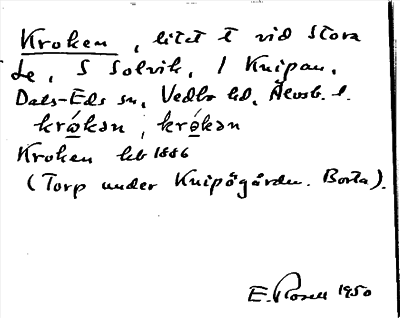 Kroken, litet t vid Stora
Le, S Solvik, / Knipan,
Dals-Eds sn, Vedbo hd, Älvsb. l.
krókən, krókən
Kroken hb 1886
(Torp under Knipögården. Borta).
E. Rosell 1950